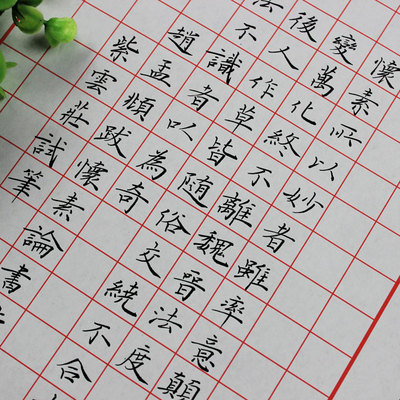 懷素所以妙者雖率意顛
變萬化終不離魏晉法度
後人作草皆隨俗交繞不合
法不識者以為奇
趙孟頫跋懷素論書
紫雲莊試筆